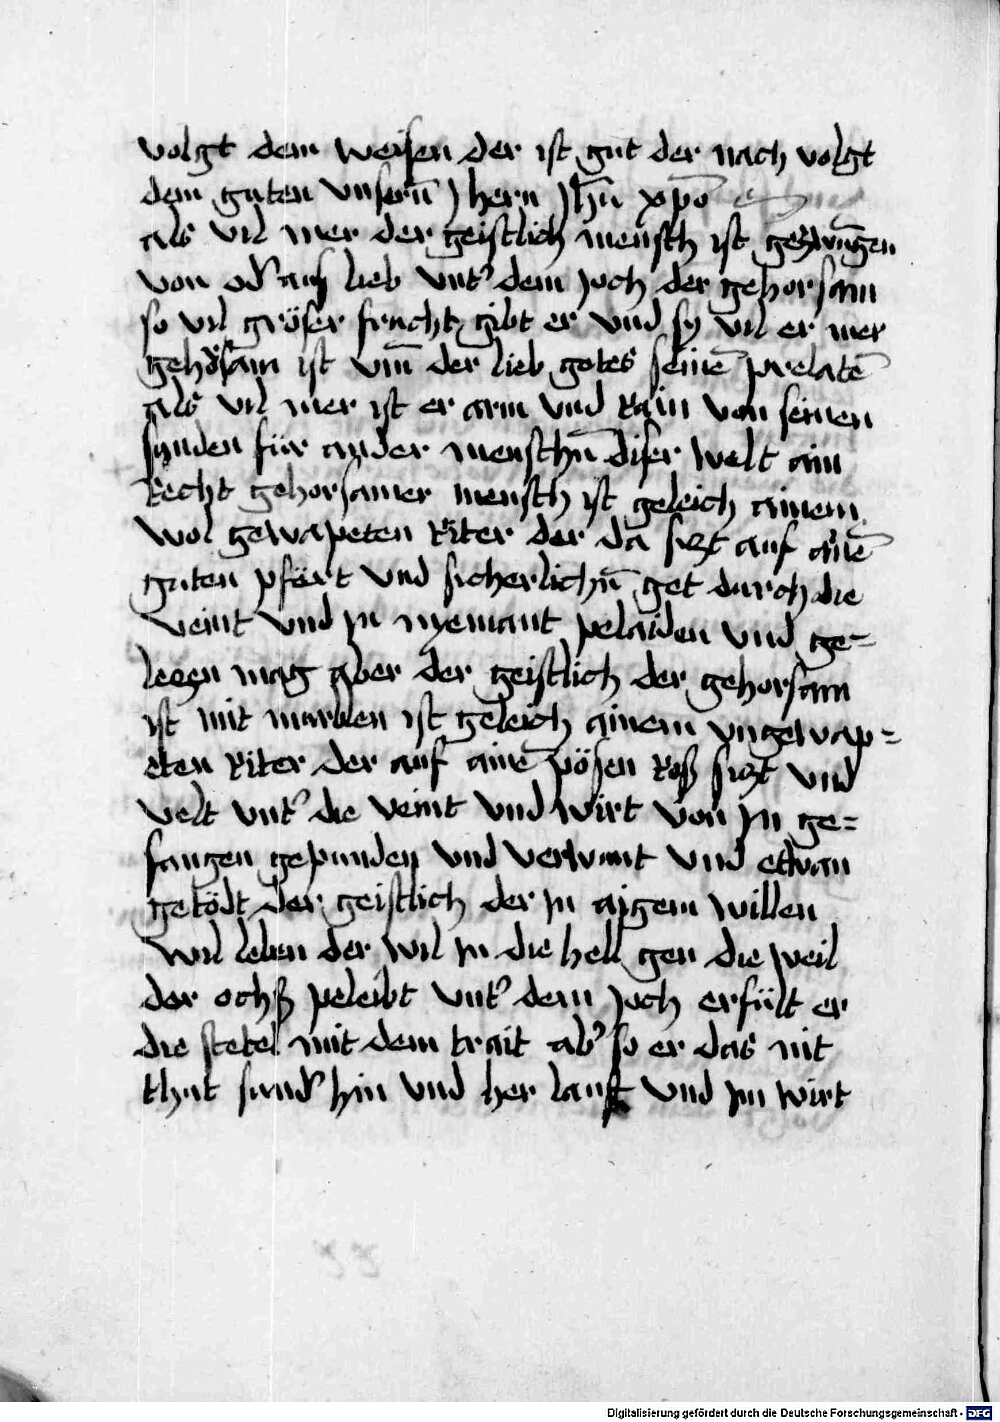 volgt dem weisen der ist gut der nach volgt
dem guten vnserm̄ hern Jh̄u xp̄o
als vil mer der geistlich mensch ist gezwunḡen
von od' aus lieb vnt' dem joch der gehorsam
so vil gröser frucht gibt er vnd sy vil er mer
gehörsam ist vm̄ der lieb gotes seinē prelatē
als vil mer ist er arm vnd Rain von seinen
sünden für ander menschn̄ diser welt ain
Recht gehorsamer mensch ist geleich ainem
wol gewapeten Riter der da sizt auf ainē
guten pfärt vnd sicherlichn̄ get durch die
veint vnd jn nyemant pelaiden vnd ge=
leczn mag aber der geistlich der gehorsam
ist mit murblen ist geleich ainem vngewap=
eten Riter der auf ainē pösen Roß sizt vnd
velt vnt' die veint vnd wirt von jn ge=
fangen gepunden vnd verwunt vnd etwan
getödt der geistlich der jn aigem willen
wil leben der wil jn die hell gen die weil
der ochß peleibt vnt' dem joch erfült er
die stetel mit dem trait ab' so er das nit
thut sund' hin vnd her lauft vnd jm wirt
Digitalisierung gefördert durch die Deutsche Forschungsgemeinschaft - DFG